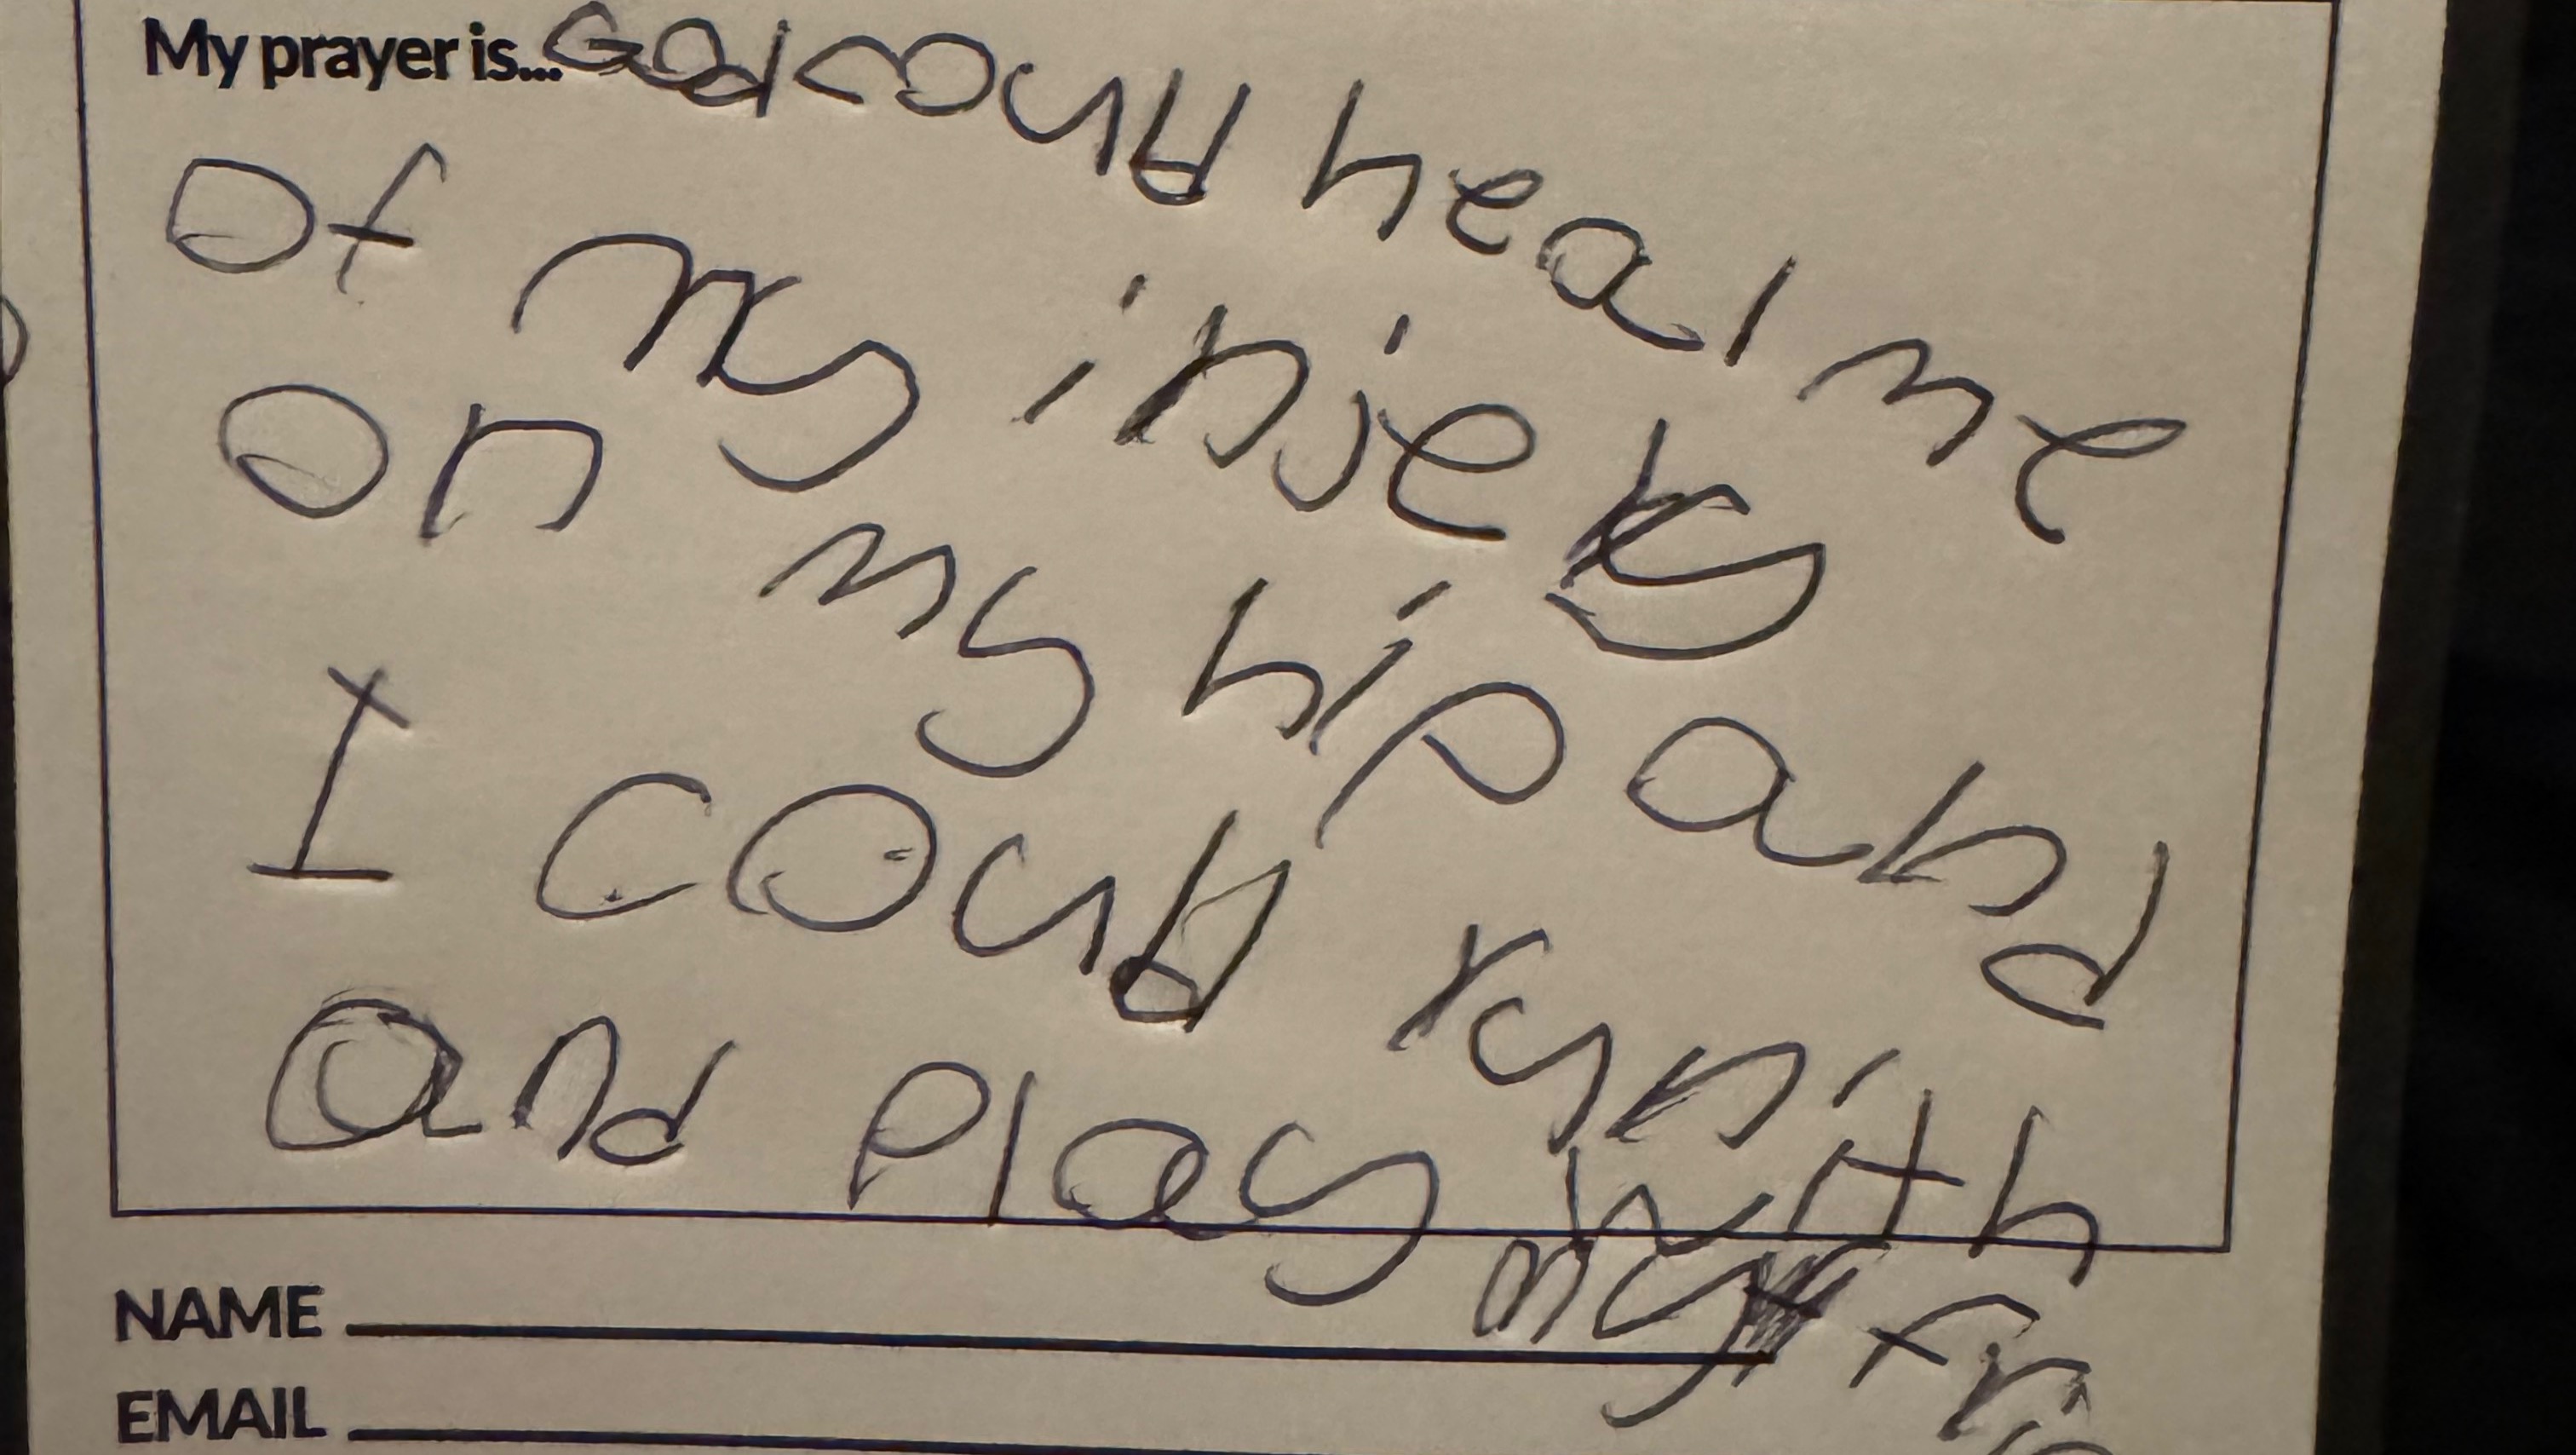 My prayer is... God coud heal me
of my injery
on my hip and
I coud run
and play with
my fri
NAME
EMAIL